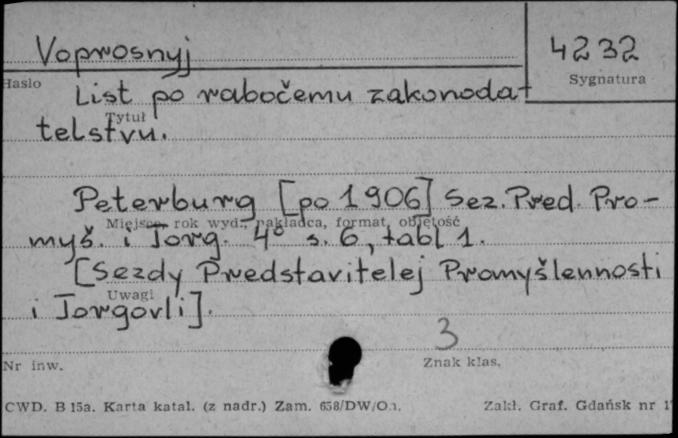 Voprosnyj
4232
Hasło
Sygnatura
List po rabočemu zakonoda-
Tytuł
telstvu.
Peterburg [po 1906] Sez. Pred. Pro-
Miejsce, rok wyd., nakładca, format, objętość
myš. i Torg. 4° s. 6, tabl 1.
[Sezdy Predstavitelej Promyšlennosti
Uwagi
i Torgovli].
3
Nr inw.
Znak klas.
CWD. B 15a. Karta katal. (z nadr.) Zam. 658/DW/
Zakł. Graf. Gdańsk nr